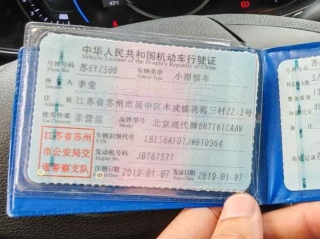 中华人民共和国机动车行驶证
Vehicle License of the People's Republic of China
号牌号码 苏EY2506 车辆类型 小型轿车
Plate No. Vehicle Type
所有人
Owner
住址 江苏省苏州市吴中区木渎镇花苑三村22-3号
Address
使用性质 非营运 品牌型号 北京现代牌BH7161CAAV
Model
江苏省苏州
市公安局交
通警察支队
车辆识别代号
VIN
发动机号码 JB787571
Engine No.
注册日期 2019-01-07 发证日期 2019-01-07